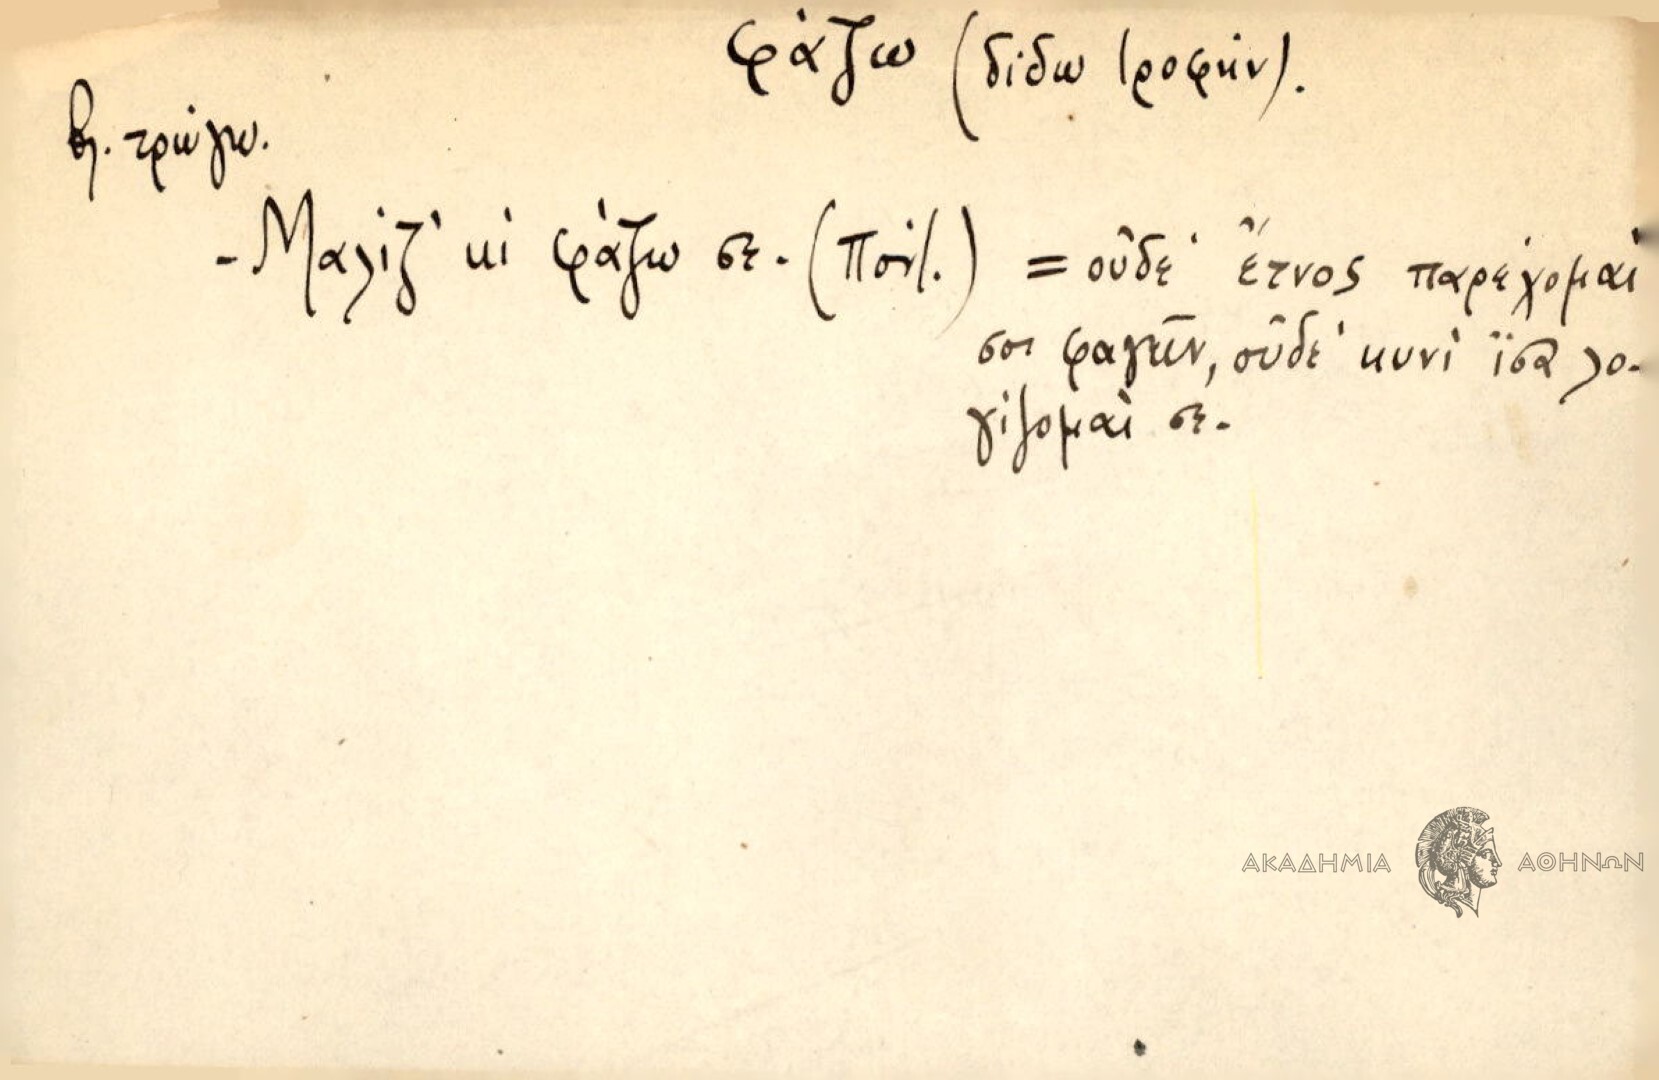 φάζω (δίδω τροφήν).
βλ. τρώγω.
- Μαλέζ' κὶ φάζω σε. (Πόντ.) = οὐδὲ ἔτνος παρέχομαί
σοι φαγεῖν, οὐδὲ κυνὶ ἴσα λο-
γίζομαί σε.
ΑΚΑΔΗΜΙΑ ΑΘΗΝΩΝ